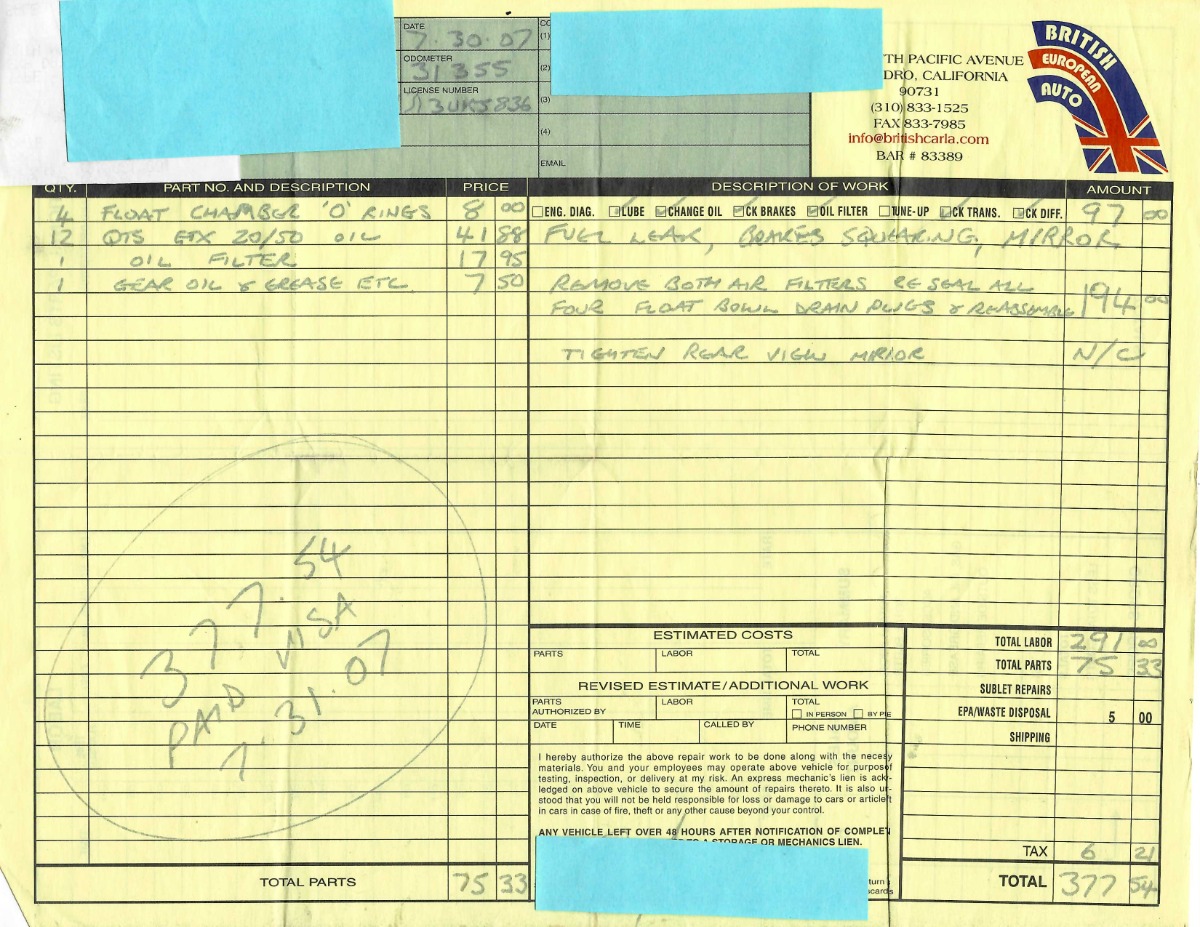 DATE
7.30.07
ODOMETER
31355
LICENSE NUMBER
(1)
(2)
(3)
(4)
EMAIL
TH PACIFIC AVENUE
DRO, CALIFORNIA
90731
(310) 833-1525
FAX 833-7985
info@britishcarla.com
BAR # 83389
BRITISH
EUROPEAN
AUTO
QTY. PART NO. AND DESCRIPTION PRICE DESCRIPTION OF WORK AMOUNT
4 FLOAT CHAMBER 'O' RINGS 8 00
ENG. DIAG. LUBE CHANGE OIL CK BRAKES OIL FILTER TUNE-UP CK TRANS. CK DIFF. 97 00
12 QTS GTX 20/50 OIL 41 88
FUEL LEAK, BRAKES SQUEAKING, MIRROR
1 OIL FILTER 17 95
1 GEAR OIL & GREASE ETC. 7 50
REMOVE BOTH AIR FILTERS RESEAL ALL
FOUR FLOAT BOWL DRAIN PLUGS & REASSEMBLE 194 00
TIGHTEN REAR VIEW MIRROR N/C
377.54
PAID VISA
7.31.07
ESTIMATED COSTS
PARTS LABOR TOTAL
REVISED ESTIMATE/ADDITIONAL WORK
PARTS LABOR TOTAL
AUTHORIZED BY IN PERSON BY
DATE TIME CALLED BY PHONE NUMBER
I hereby authorize the above repair work to be done along with the neces
materials. You and your employees may operate above vehicle for purpose
testing, inspection, or delivery at my risk. An express mechanic's lien is ack-
ledged on above vehicle to secure the amount of repairs thereto. It is also ur-
stood that you will not be held responsible for loss or damage to cars or article
in cars in case of fire, theft or any other cause beyond your control.
ANY VEHICLE LEFT OVER 48 HOURS AFTER NOTIFICATION OF COMPLE
STORAGE OR MECHANICS LIEN.
TOTAL LABOR 291 00
TOTAL PARTS 75 33
SUBLET REPAIRS
EPA/WASTE DISPOSAL 5 00
SHIPPING
TAX 6 21
TOTAL PARTS 75 33
TOTAL 377 54